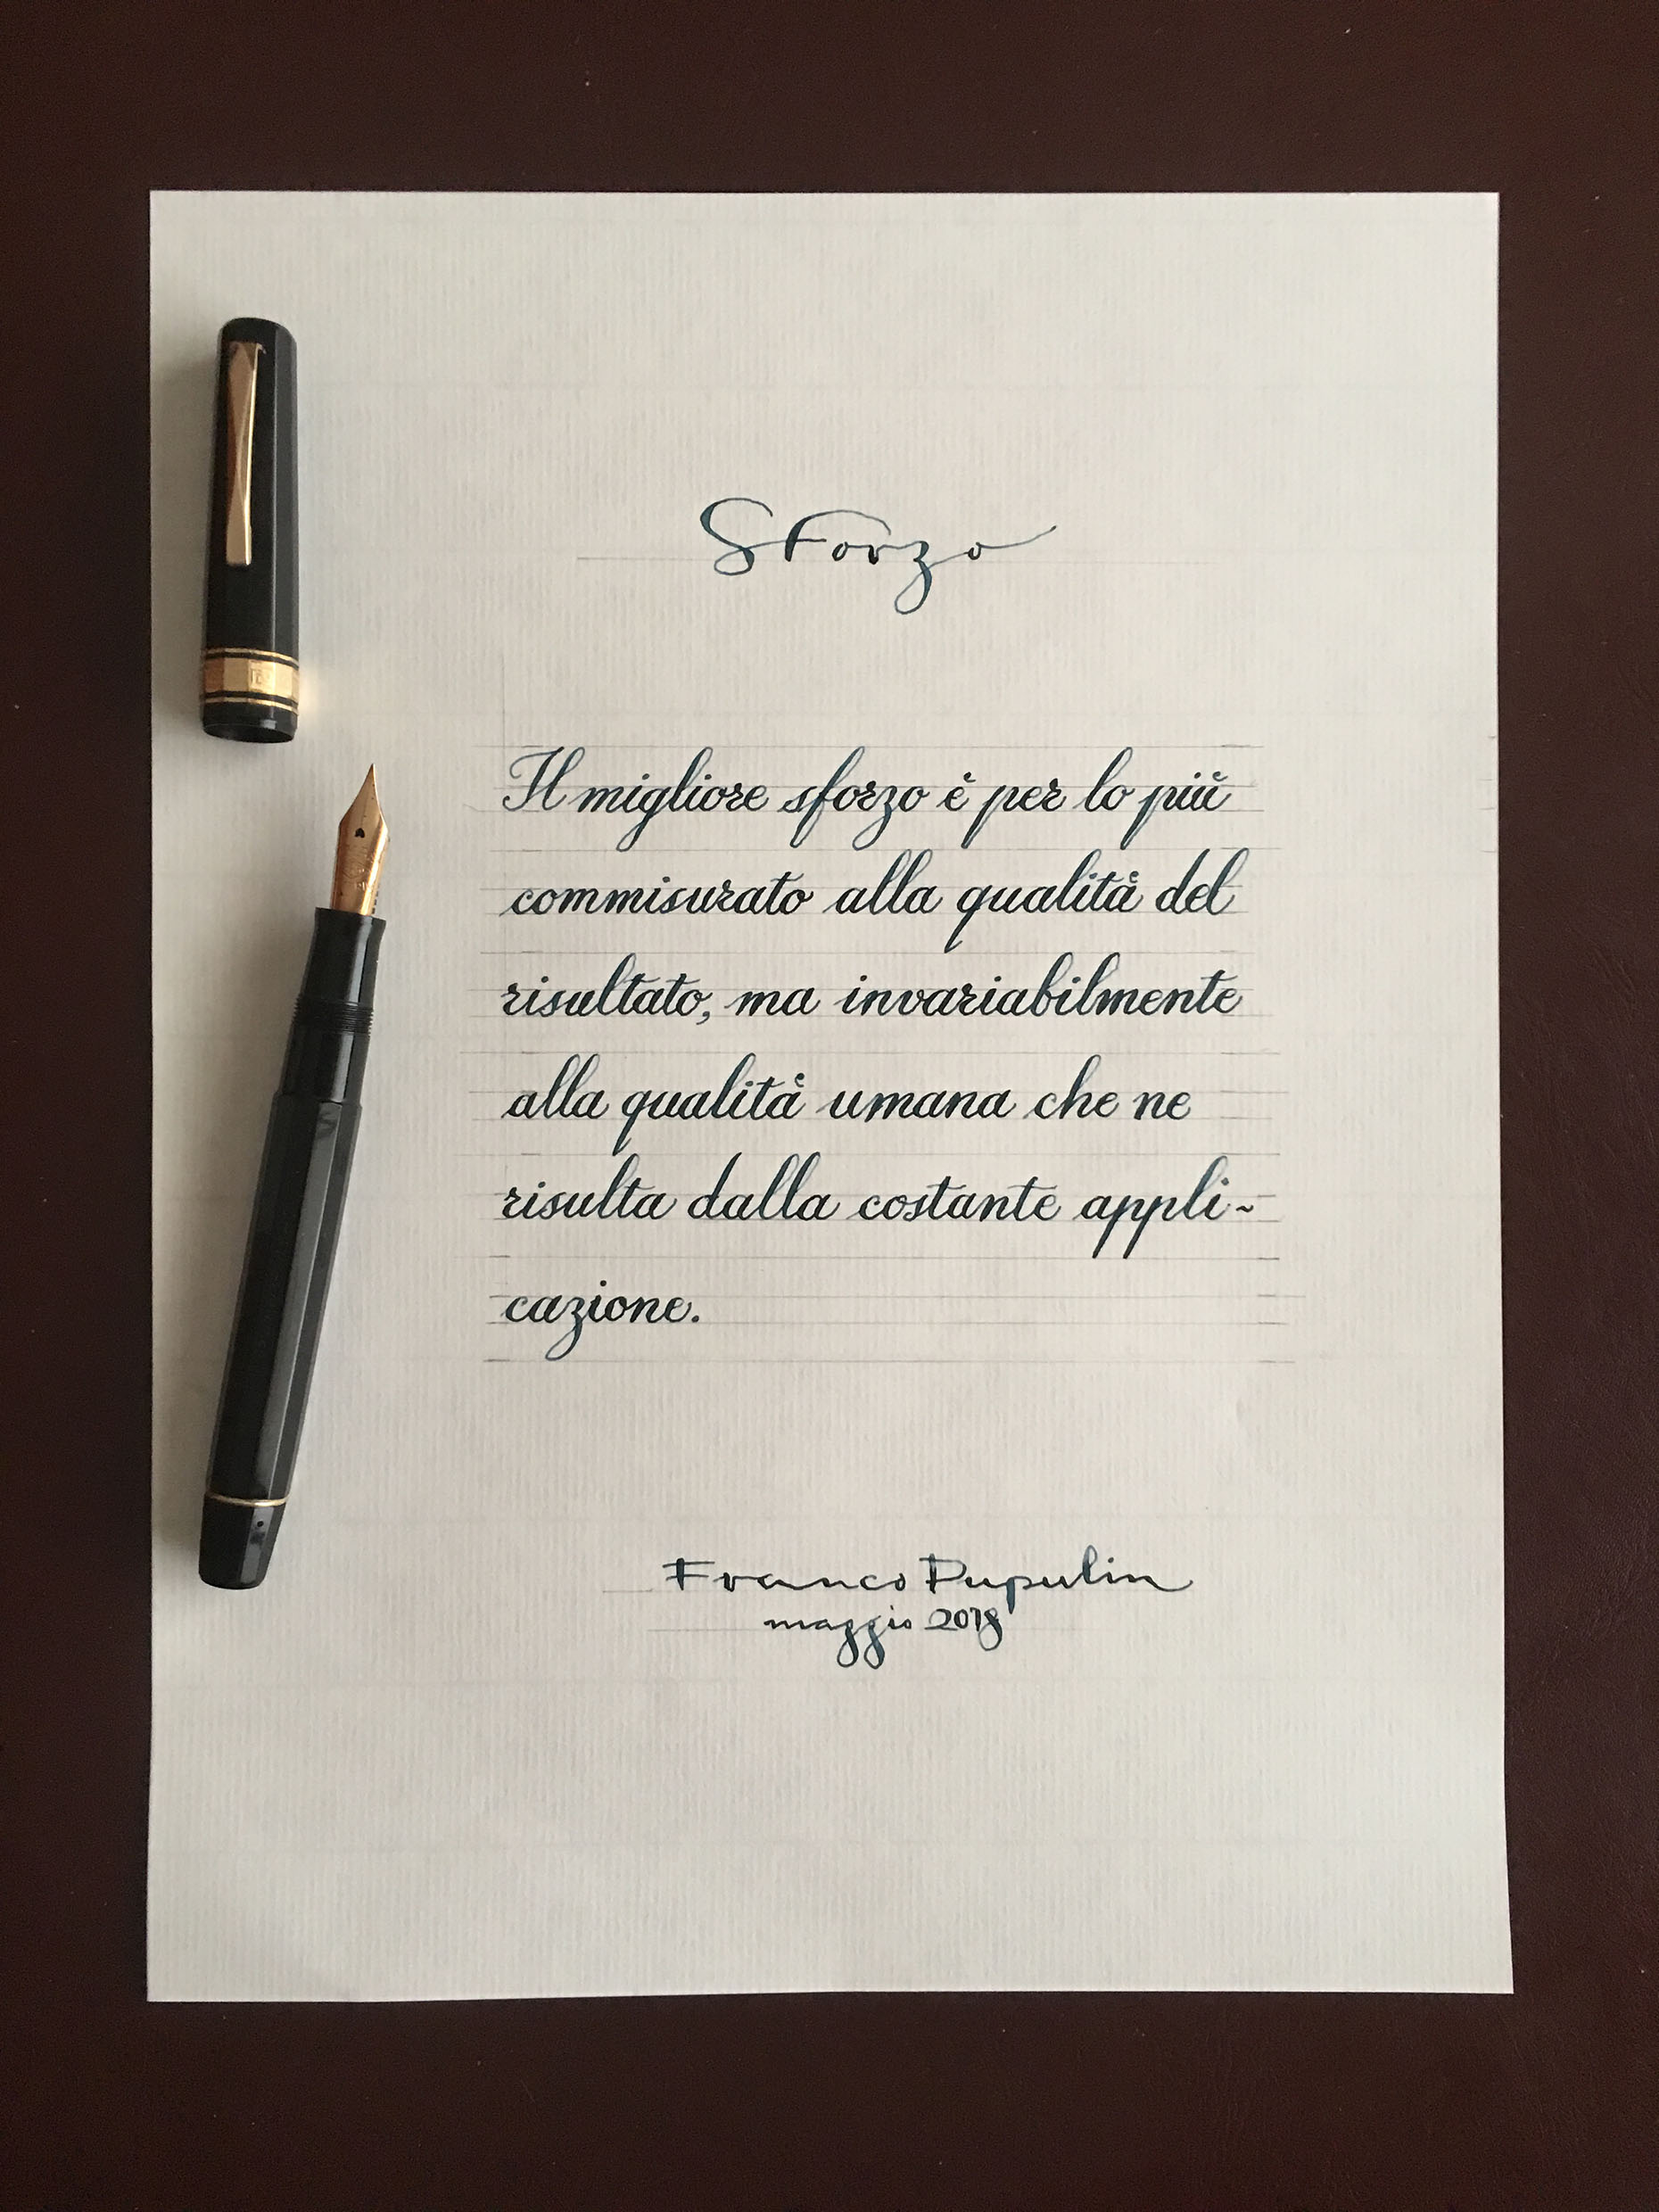 Sforzo
Il migliore sforzo è per lo più
commisurato alla qualità del
risultato, ma invariabilmente
alla qualità umana che ne
risulta dalla costante appli-
cazione.
Franco Pupulin
maggio 2018